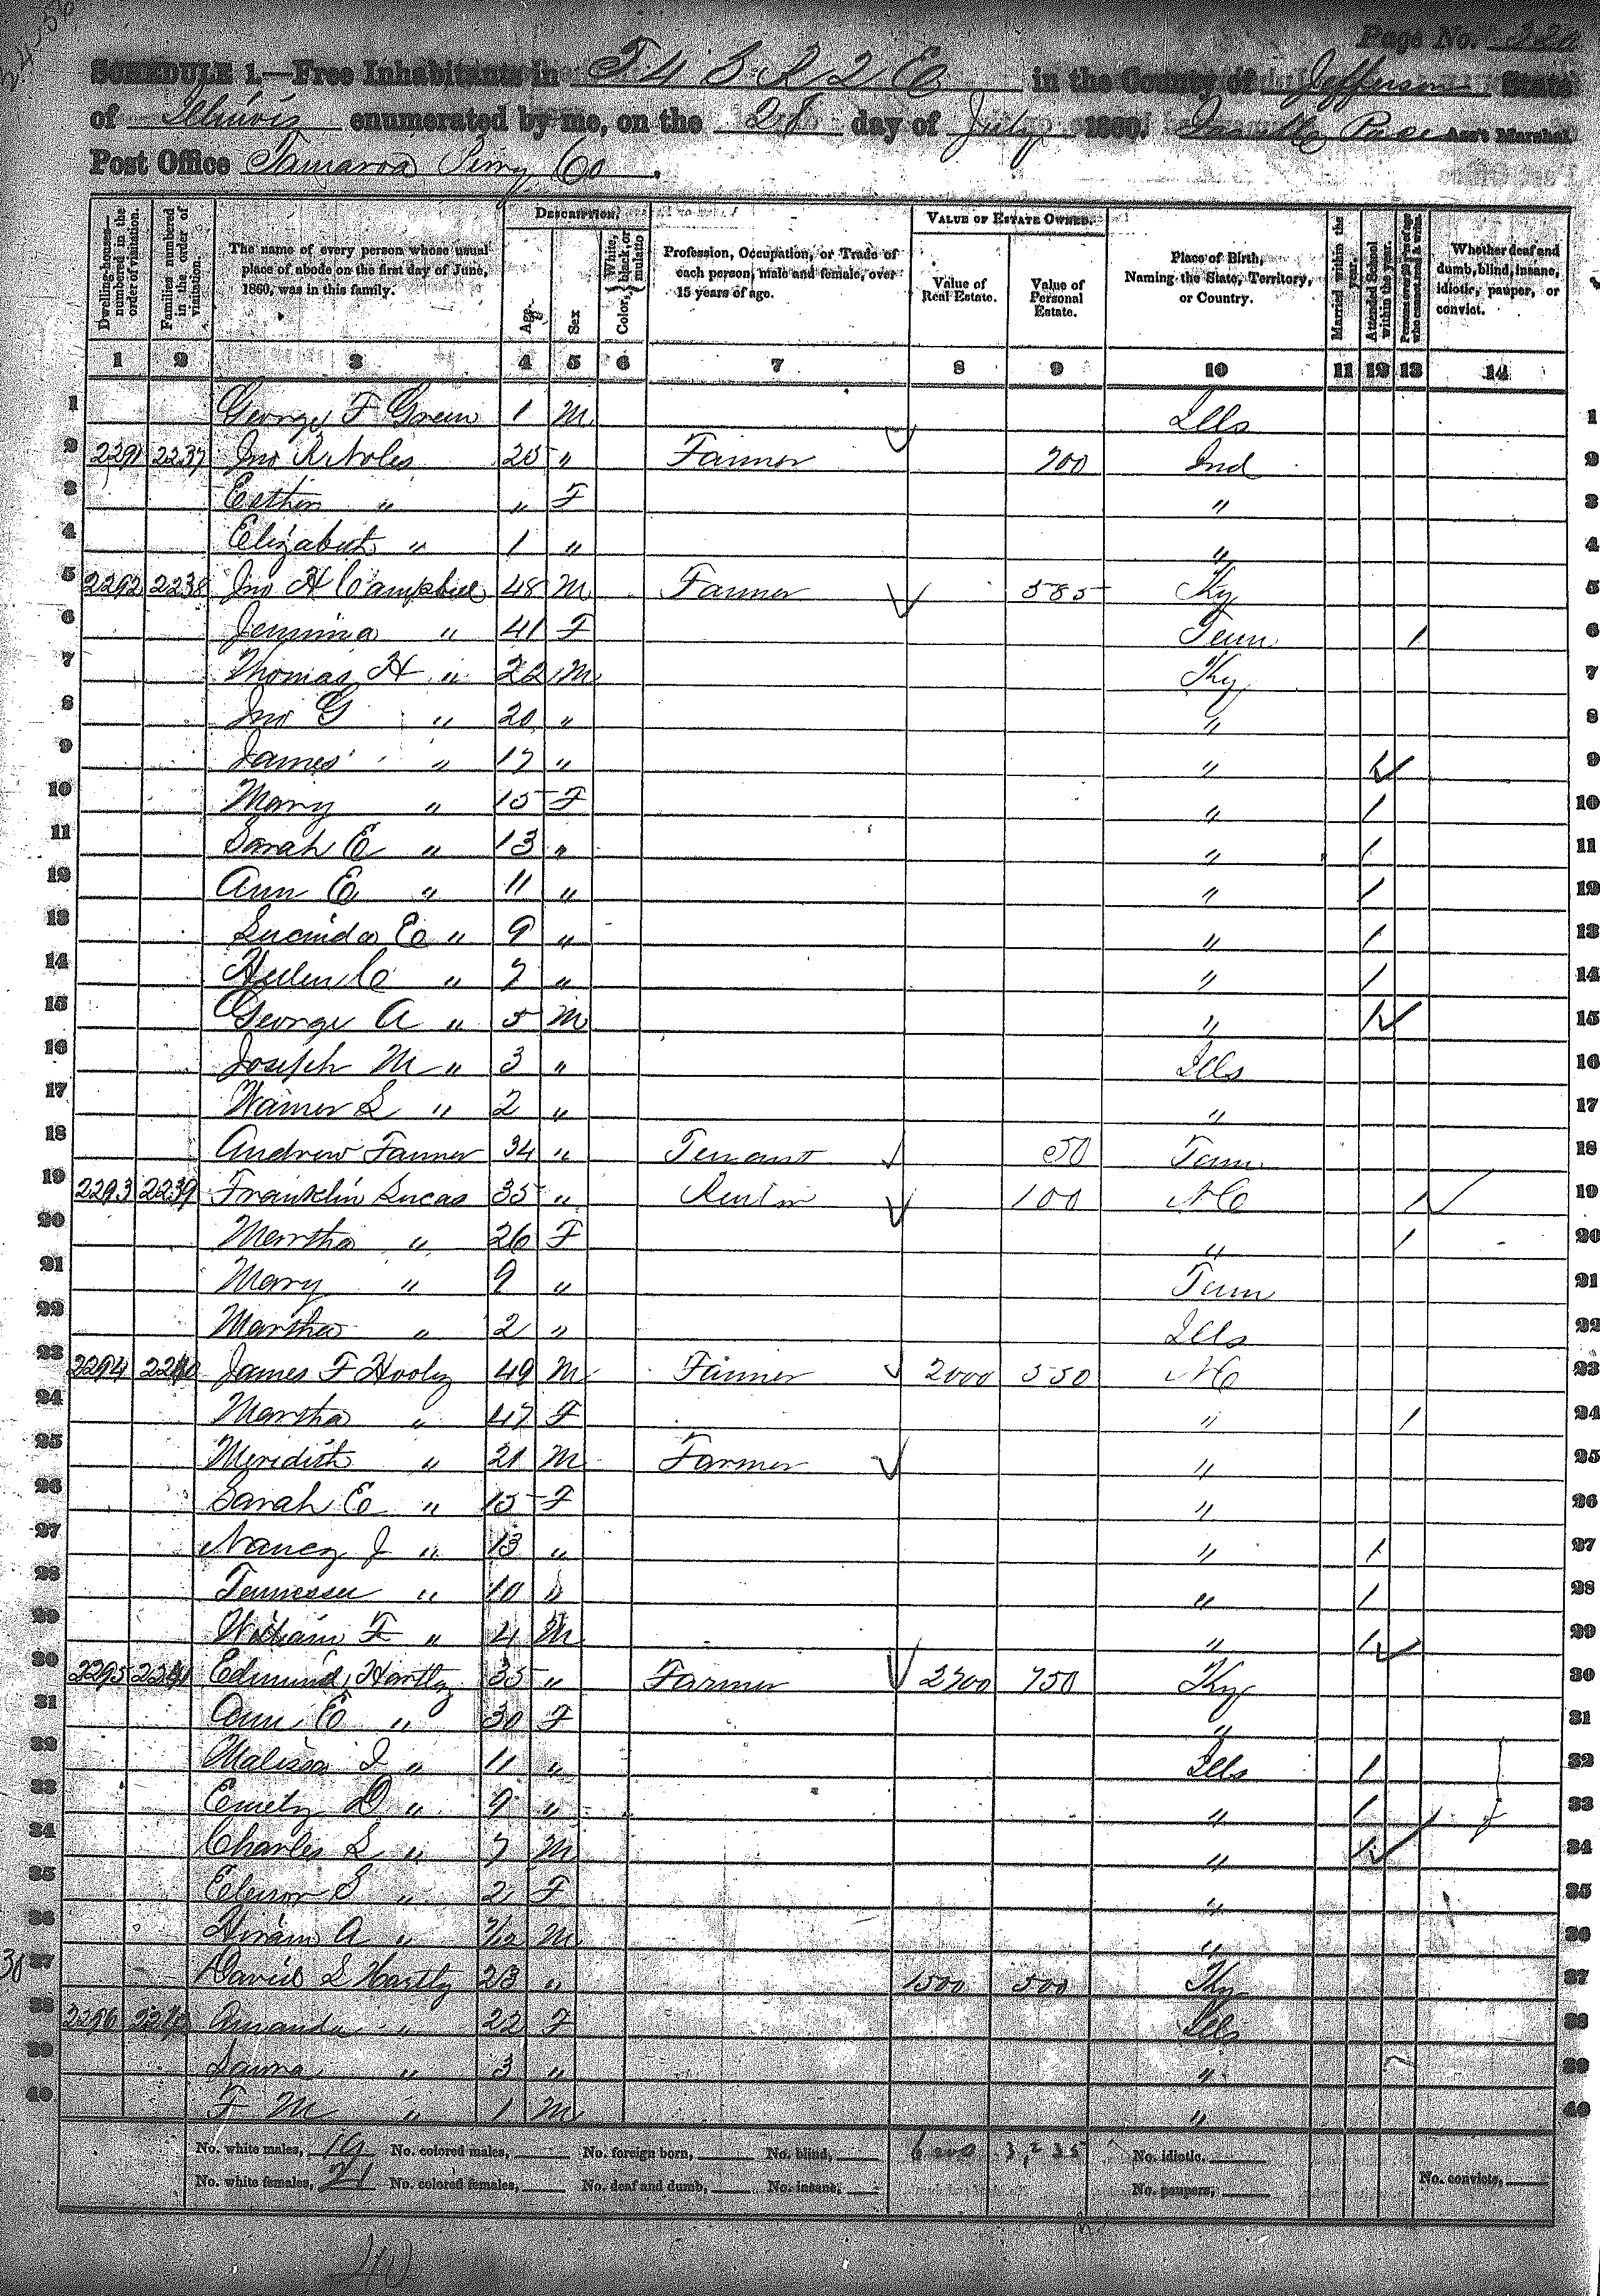 Page No.
SCHEDULE 1.—Free Inhabitants in T 4 S R 2 E in the County of Jefferson State
of Illinois enumerated by me, on the 28 day of July 1860. Pace Ass't Marshal.
Post Office Tamaroa Perry Co.
Dwelling-houses—numbered in the order of visitation.
Families numbered in the order of visitation.
The name of every person whose usual place of abode on the first day of June, 1860, was in this family.
DESCRIPTION.
Age.
Sex
Color, White, black, or mulatto
Profession, Occupation, or Trade of each person, male and female, over 15 years of age.
VALUE OF ESTATE OWNED.
Value of Real Estate.
Value of Personal Estate.
Place of Birth, Naming the State, Territory, or Country.
Married within the year.
Attended School within the year.
Persons over 20 y'rs of age who cannot read & write.
Whether deaf and dumb, blind, insane, idiotic, pauper, or convict.
1 2 3 4 5 6 7 8 9 10 11 12 13 14
1 George F Green 1 M Ills 1
2 2291 2237 Jno R Noles 25 " Farmer 200 Ind 2
3 Esther " " F " 3
4 Elizabeth " 1 " " 4
5 2292 2238 Jno H Campbell 48 M Farmer 585 Ky 5
6 Jemima " 41 F Tenn / 6
7 Thomas H " 22 M Ky 7
8 Jno G " 20 " " 8
9 James " 17 " " / 9
10 Mary " 15 F " / 10
11 Sarah E " 13 " " / 11
12 Ann E " 11 " " / 12
13 Lucinda E " 9 " " / 13
14 Hellen C " 7 " " / 14
15 George A " 5 M " / 15
16 Joseph M " 3 " Ills 16
17 Warner L " 2 " " 17
18 Andrew Farmer 34 " Tenant 50 Tenn 18
19 2293 2239 Franklin Lucas 35 " Renter 100 NC / 19
20 Martha " 26 F " / 20
21 Mary " 9 " Tenn 21
22 Martha " 2 " Ills 22
23 2294 2240 James F Hooly 49 M Farmer 2000 550 NC 23
24 Martha " 47 F " / 24
25 Meridith " 21 M Farmer " 25
26 Sarah E " 15 F " 26
27 Nancy J " 13 " " / 27
28 Tennessee " 10 " " / 28
29 William F " 4 M " / 29
30 2295 2241 Edmund Hartly 35 " Farmer 2700 750 Ky 30
31 Ann E " 30 F " 31
32 Malissa J " 11 " Ills / 32
33 Emely D " 9 " " / 33
34 Charles L " 7 M " / 34
35 Elenor S " 2 F " 35
36 Hiram A " 7/12 M " 36
37 David L Hartly 23 " 1500 500 Ky 37
38 2296 2242 Amanda " 22 F Ills 38
39 Laura " 3 " " 39
40 F M " 1 M " 40
No. white males, 19 No. colored males, No. foreign born, No. blind, 3,235 No. idiotic,
No. white females, 21 No. colored females, No. deaf and dumb, No. insane, No. paupers, No. convicts,
40